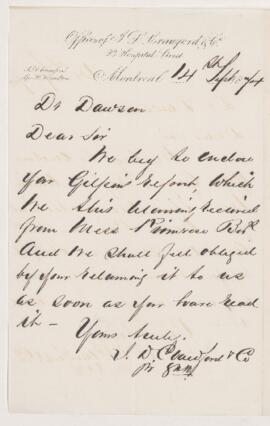 Office of J. D. Crawford & Co.
Hospital Street
Montreal 14th Sept 1874
Dr Dawson
Dear Sir
We beg to enclose
you Gilpin's report, which
We this Morning received
from Mess Primrose Bros
And we shall feel obliged
by your returning it to us
as soon as you have read
it -
Yours truly,
J. D. Crawford & Co
pr